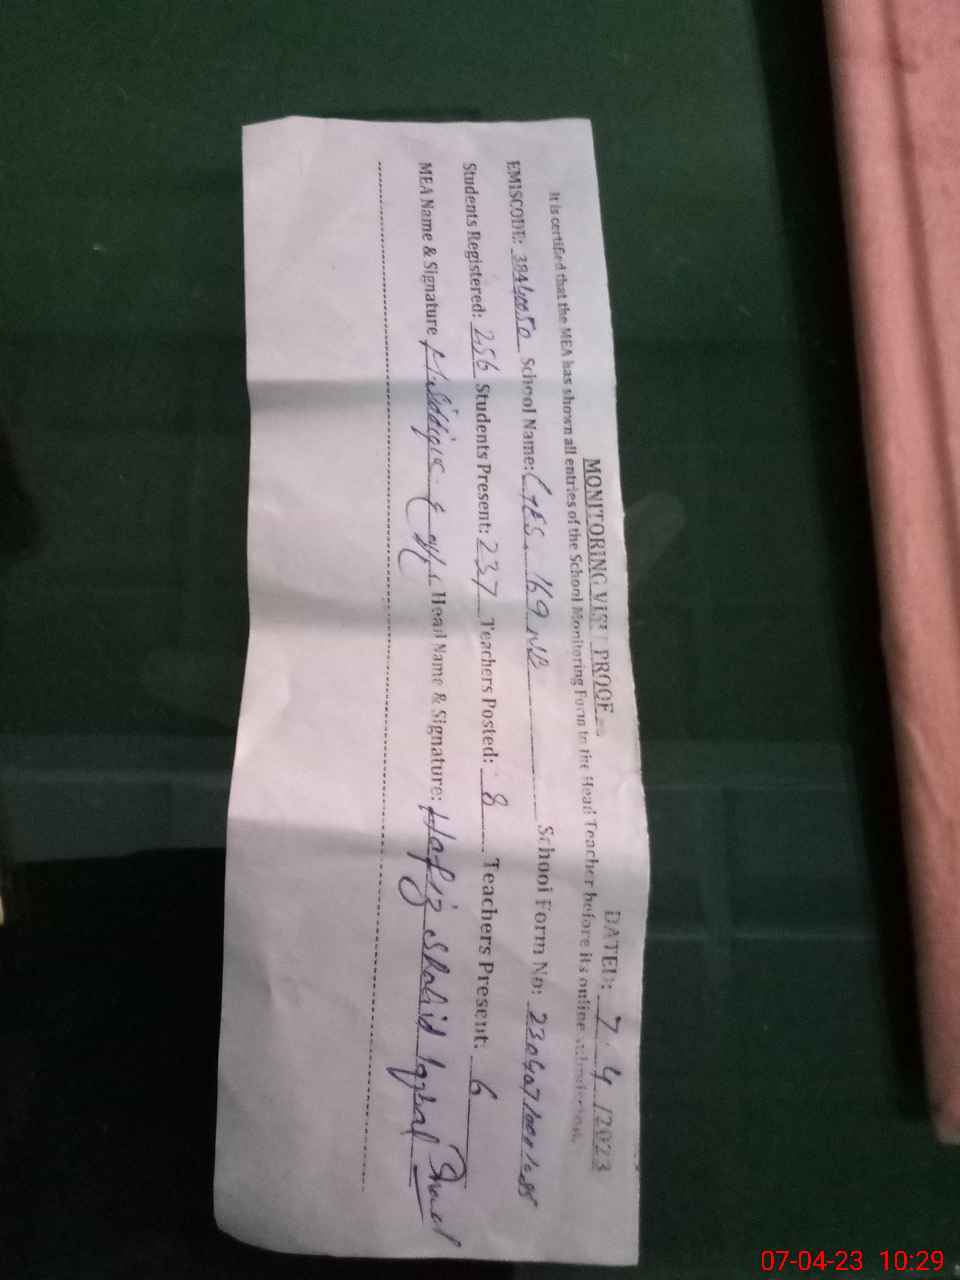 MONITORING VISIT PROOF
DATED: 7 4 /2023
It is certified that the MEA has shown all entries of the School Monitoring Form to the Head Teacher before its online submission.
EMISCODE: 38440050 School Name: GES. 169 NB School Form No:
Students Registered: 256 Students Present: 237 Teachers Posted: 8 Teachers Present: 6
MEA Name & Signature Head Name & Signature: Hafiz Shahid Iqbal
07-04-23 10:29